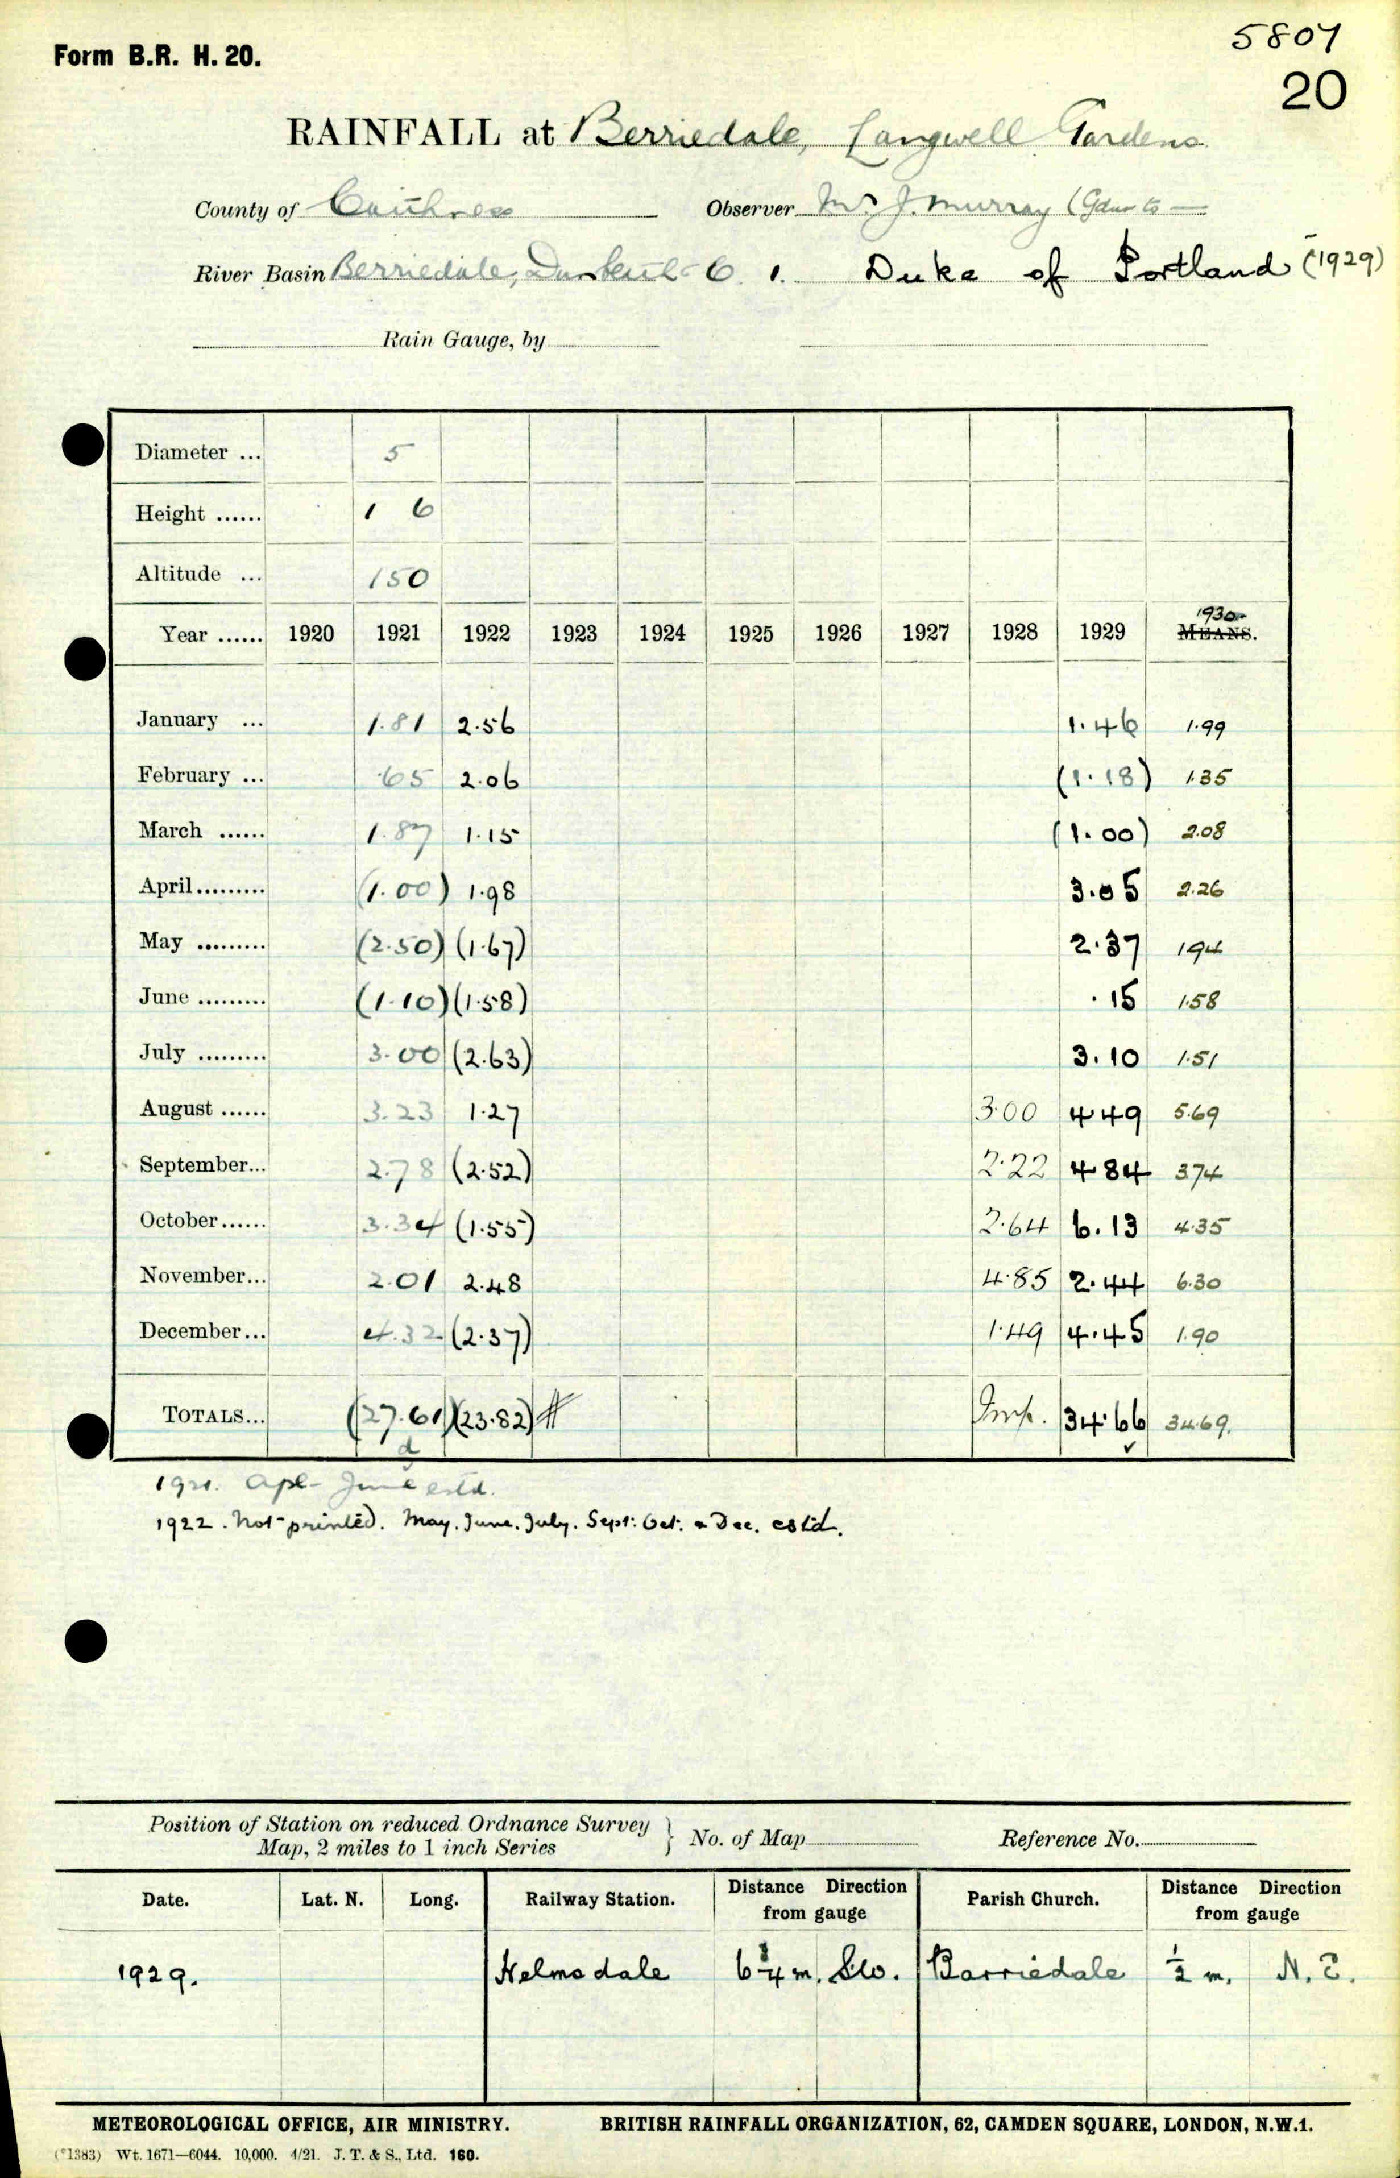 Form B.R. H. 20.
5807
20
RAINFALL at Berriedale, Langwell Gardens
County of Caithness Observer Mr J. Murray (Gdnr to —
River Basin Berriedale, Dunbeath C. 1. Duke of Portland (1929)
Rain Gauge, by
Diameter ... 5
Height ...... 1 6
Altitude ... 150
Year ...... 1920 1921 1922 1923 1924 1925 1926 1927 1928 1929 1930 MEANS.
January ... 1.81 2.56 1.46 1.99
February ... .65 2.06 (1.18) 1.35
March ...... 1.87 1.15 (1.00) 2.08
April......... (1.00) 1.98 3.05 2.26
May ......... (2.50) (1.67) 2.37 194
June ......... (1.10) (1.58) .15 1.58
July ......... 3.00 (2.63) 3.10 1.51
August ...... 3.23 1.27 3.00 4.49 5.69
September... 2.78 (2.52) 2.22 4.84 3.74
October...... 3.34 (1.55) 2.64 6.13 4.35
November... 2.01 2.48 4.85 2.44 6.30
December... 4.32 (2.37) 1.49 4.45 1.90
TOTALS... (27.61) (23.82) # Imp. 34.66 34.69.
1921. Apl - June estd.
1922. Not printed. May. June. July. Sept: Oct: & Dec. estd.
Position of Station on reduced Ordnance Survey Map, 2 miles to 1 inch Series } No. of Map Reference No.
Date. Lat. N. Long. Railway Station. Distance Direction from gauge Parish Church. Distance Direction from gauge
1929. Helmsdale 6 3/4 m. SW. Barriedale 1/2 m. N.E.
METEOROLOGICAL OFFICE, AIR MINISTRY. BRITISH RAINFALL ORGANIZATION, 62, CAMDEN SQUARE, LONDON, N.W.1.
(*1383) Wt. 1671—6044. 10,000. 4/21. J. T. & S., Ltd. 160.